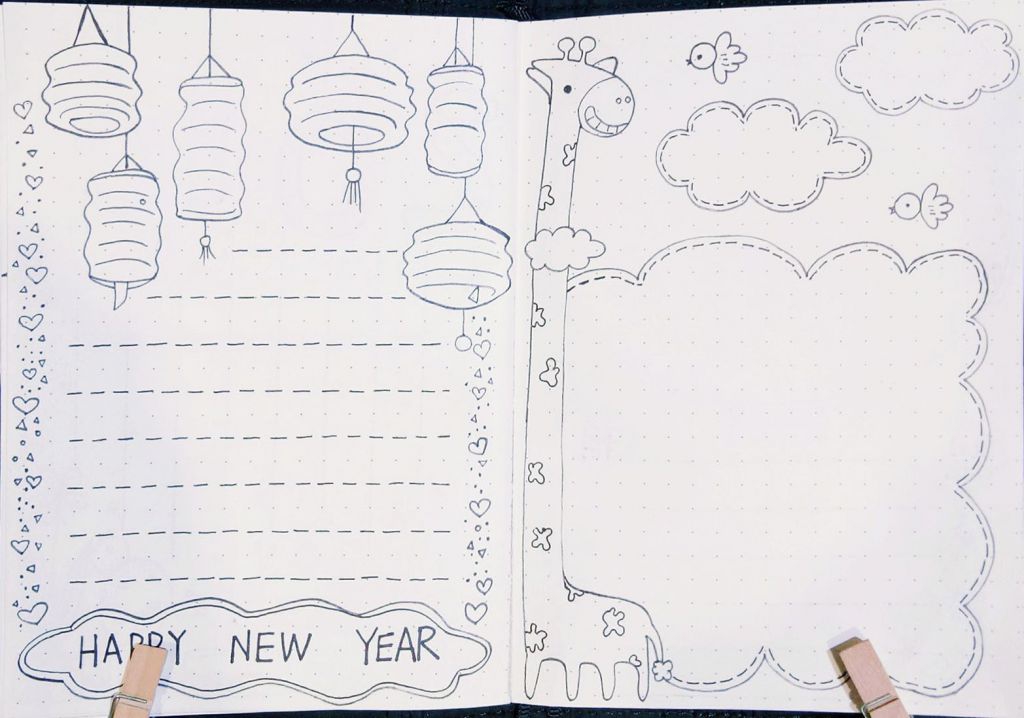 HAPPY NEW YEAR